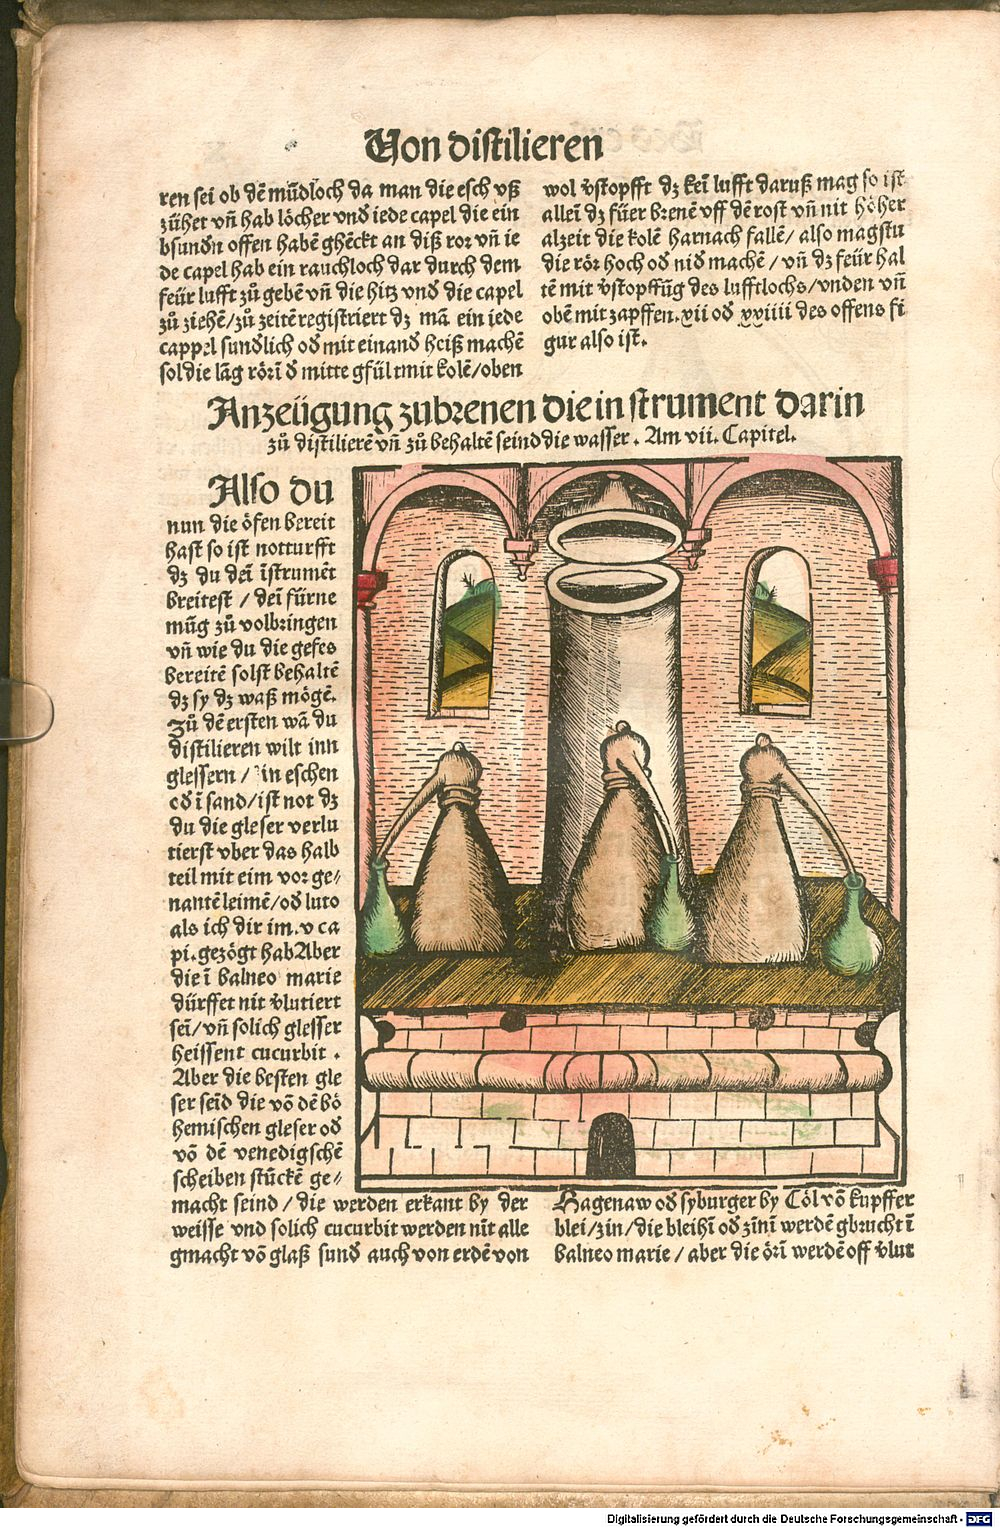 Von distilieren
ren sei ob dē mūdloch da man die esch vß
zühet vñ hab löcher vnd iede capel die ein
bsundn offen habē ghēckt an diß ror vñ ie
de capel hab ein rauchloch dar durch dem
feür lufft zů gebē vñ die hitz vnd die capel
zů ziehē/zů zeitē registriert dz mā ein iede
cappel sundlich od mit einand heiß machē
sol die lāg rörī d mitte gfült mit kolē/oben
wol v̄stopfft dz kei lufft daruß mag so ist
alleī dz füer brenē vff dē rost vñ nit höher
alzeit die kolē harnach fallē/ also magstu
die rör hoch od nid machē/ vñ dz feür hal
tē mit v̄stopffūg des lufftlochs/vnden vñ
obē mit zapffen.xii od xxiiii des offens fi
gur also ist.
Anzeügung zubrenen die instrument darin
zů distilierē vñ zů behaltē seind die wasser. Am vii. Capitel.
Also du
nun die öfen bereit
hast so ist notturfft
dz du deī īstrumēt
breitest / deī fürne
mūg zů volbringen
vñ wie du die gefes
bereitē solst behaltē
dz sy dz waß mögē.
Zů dē ersten wā du
distilieren wilt inn
glessern/ in eschen
od ī sand/ist not dz
du die gleser verlu
tierst vber das halb
teil mit eim vor ge/
nantē leimē/od luto
als ich dir im.v ca
pi.gezögt hab Aber
die ī balneo marie
dürffet nit v̄lutiert
seī/vñ solich glesser
heissent cucurbit.
Aber die besten gle
ser seīd die vō dē bö
hemischen gleser od
vō dē venedigschē
scheiben stückē ge/
macht seind/ die werden erkant by der
weisse vnd solich cucurbit werden nīt alle
gmacht vō glaß sund auch von erdē von
Hagenaw od syburger by Cöl vō kupffer
blei/zin/die bleihī od zīnī werdē gbrucht ī
balneo marie/aber die örī werdē off v̄lut
Digitalisierung gefördert durch die Deutsche Forschungsgemeinschaft - DFG